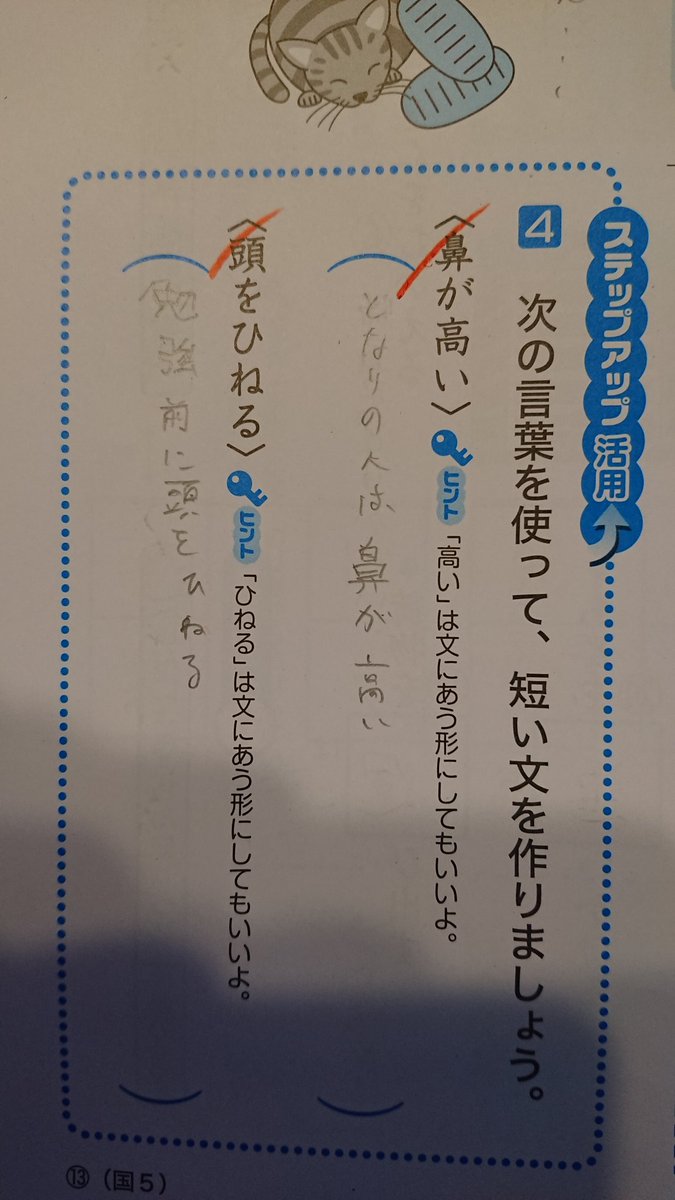 ステップアップ活用
4 次の言葉を使って、短い文を作りましょう。
〈鼻が高い〉 ヒント 「高い」は文にあう形にしてもいいよ。
となりの人は、鼻が高い
〈頭をひねる〉 ヒント 「ひねる」は文にあう形にしてもいいよ。
勉強前に頭をひねる
⑬(国5)